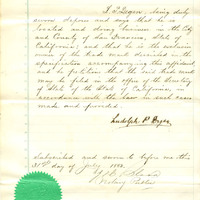 being duly
sworn deposes and says that he is
located and doing business in the City
and County of San Francisco, State of
California; and that he is the exclusive
owner of the Trade mark described in the
specification accompanying this affidavit
and he petitions that the said trade mark
may be filed in the office of the Secretary
of State of the State of California, in
accordance with the law in such cases
made and provided.
Subscribed and sworn to before me this
31st day of July 188
Notary Public